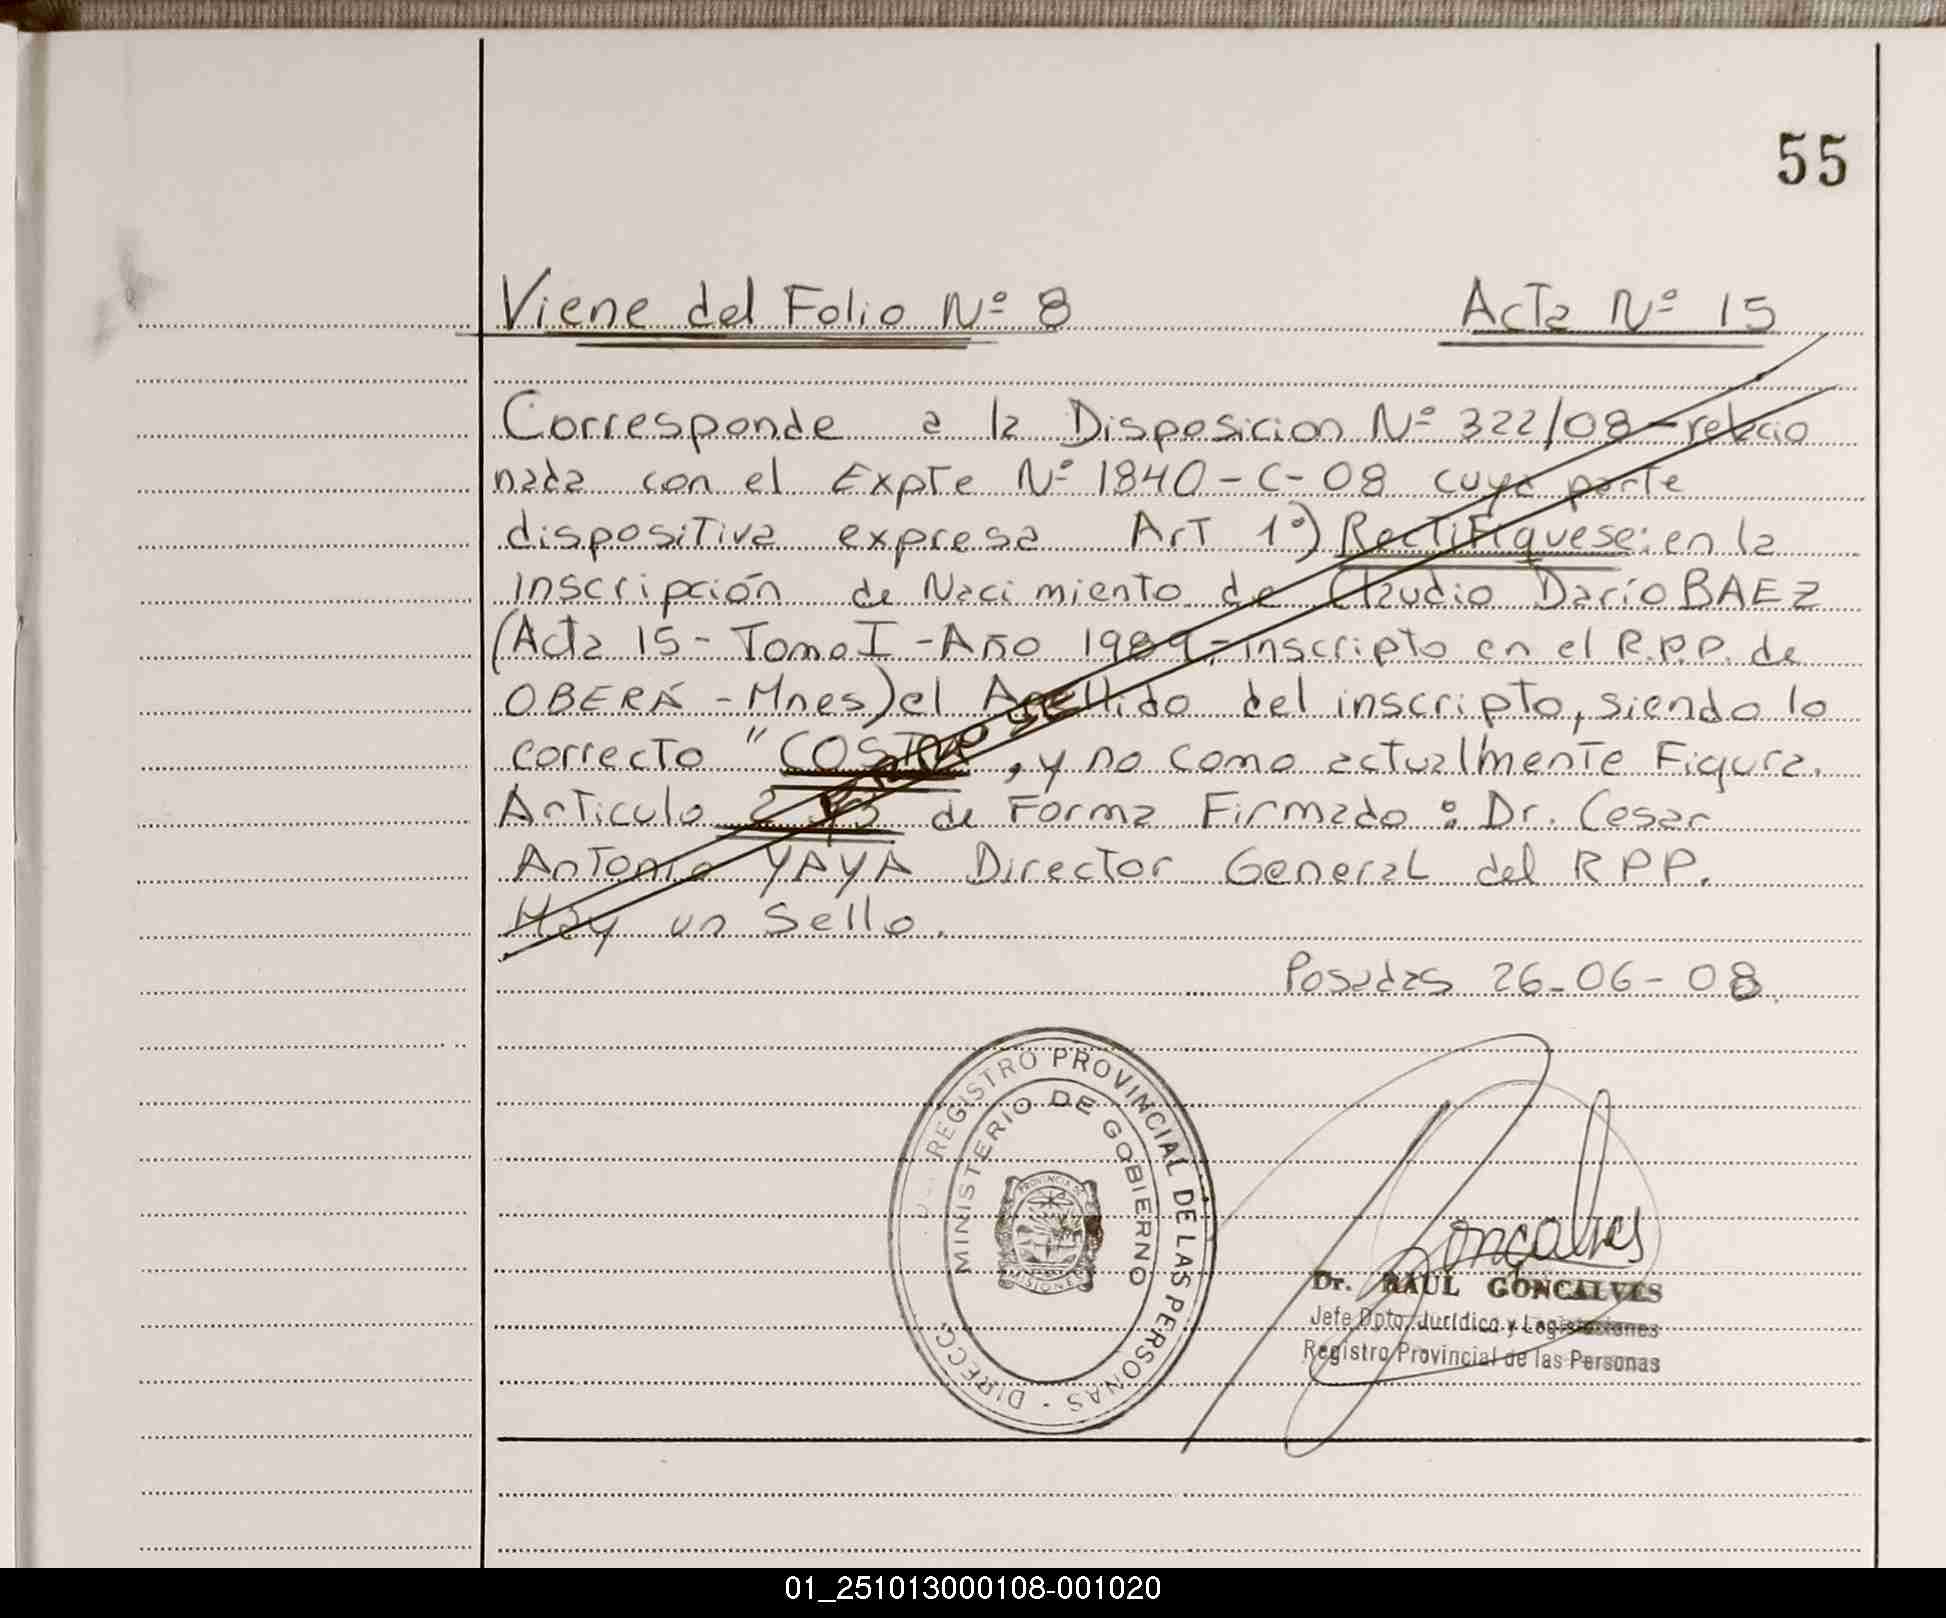 55
Viene del Folio Nº 8 Acta Nº 15
Corresponde a la Disposicion Nº 322/08 - relacio
nada con el Expte Nº 1840-C-08 cuya parte
dispositiva expresa Art 1º) Rectifiquese: en la
inscripción de Nacimiento de Claudio Darío BAEZ
(Acta 15 - Tomo I - Año 1989 - inscripto en el R.P.P. de
OBERÁ - Mnes) el Apellido del inscripto, siendo lo
correcto "COSTA", y no como actualmente Figura.
Articulo 2 y 3 de Forma Firmado: Dr. Cesar
Antonio YAYA Director General del RPP.
Hay un Sello.
Posadas 26-06-08
REGISTRO PROVINCIAL DE LAS PERSONAS - DIRECC
MINISTERIO DE GOBIERNO
PROVINCIA DE
MISIONES
Goncalves
Dr. RAUL GONCALVES
Jefe Dpto. Jurídico y Legislaciones
Registro Provincial de las Personas
01_251013000108-001020